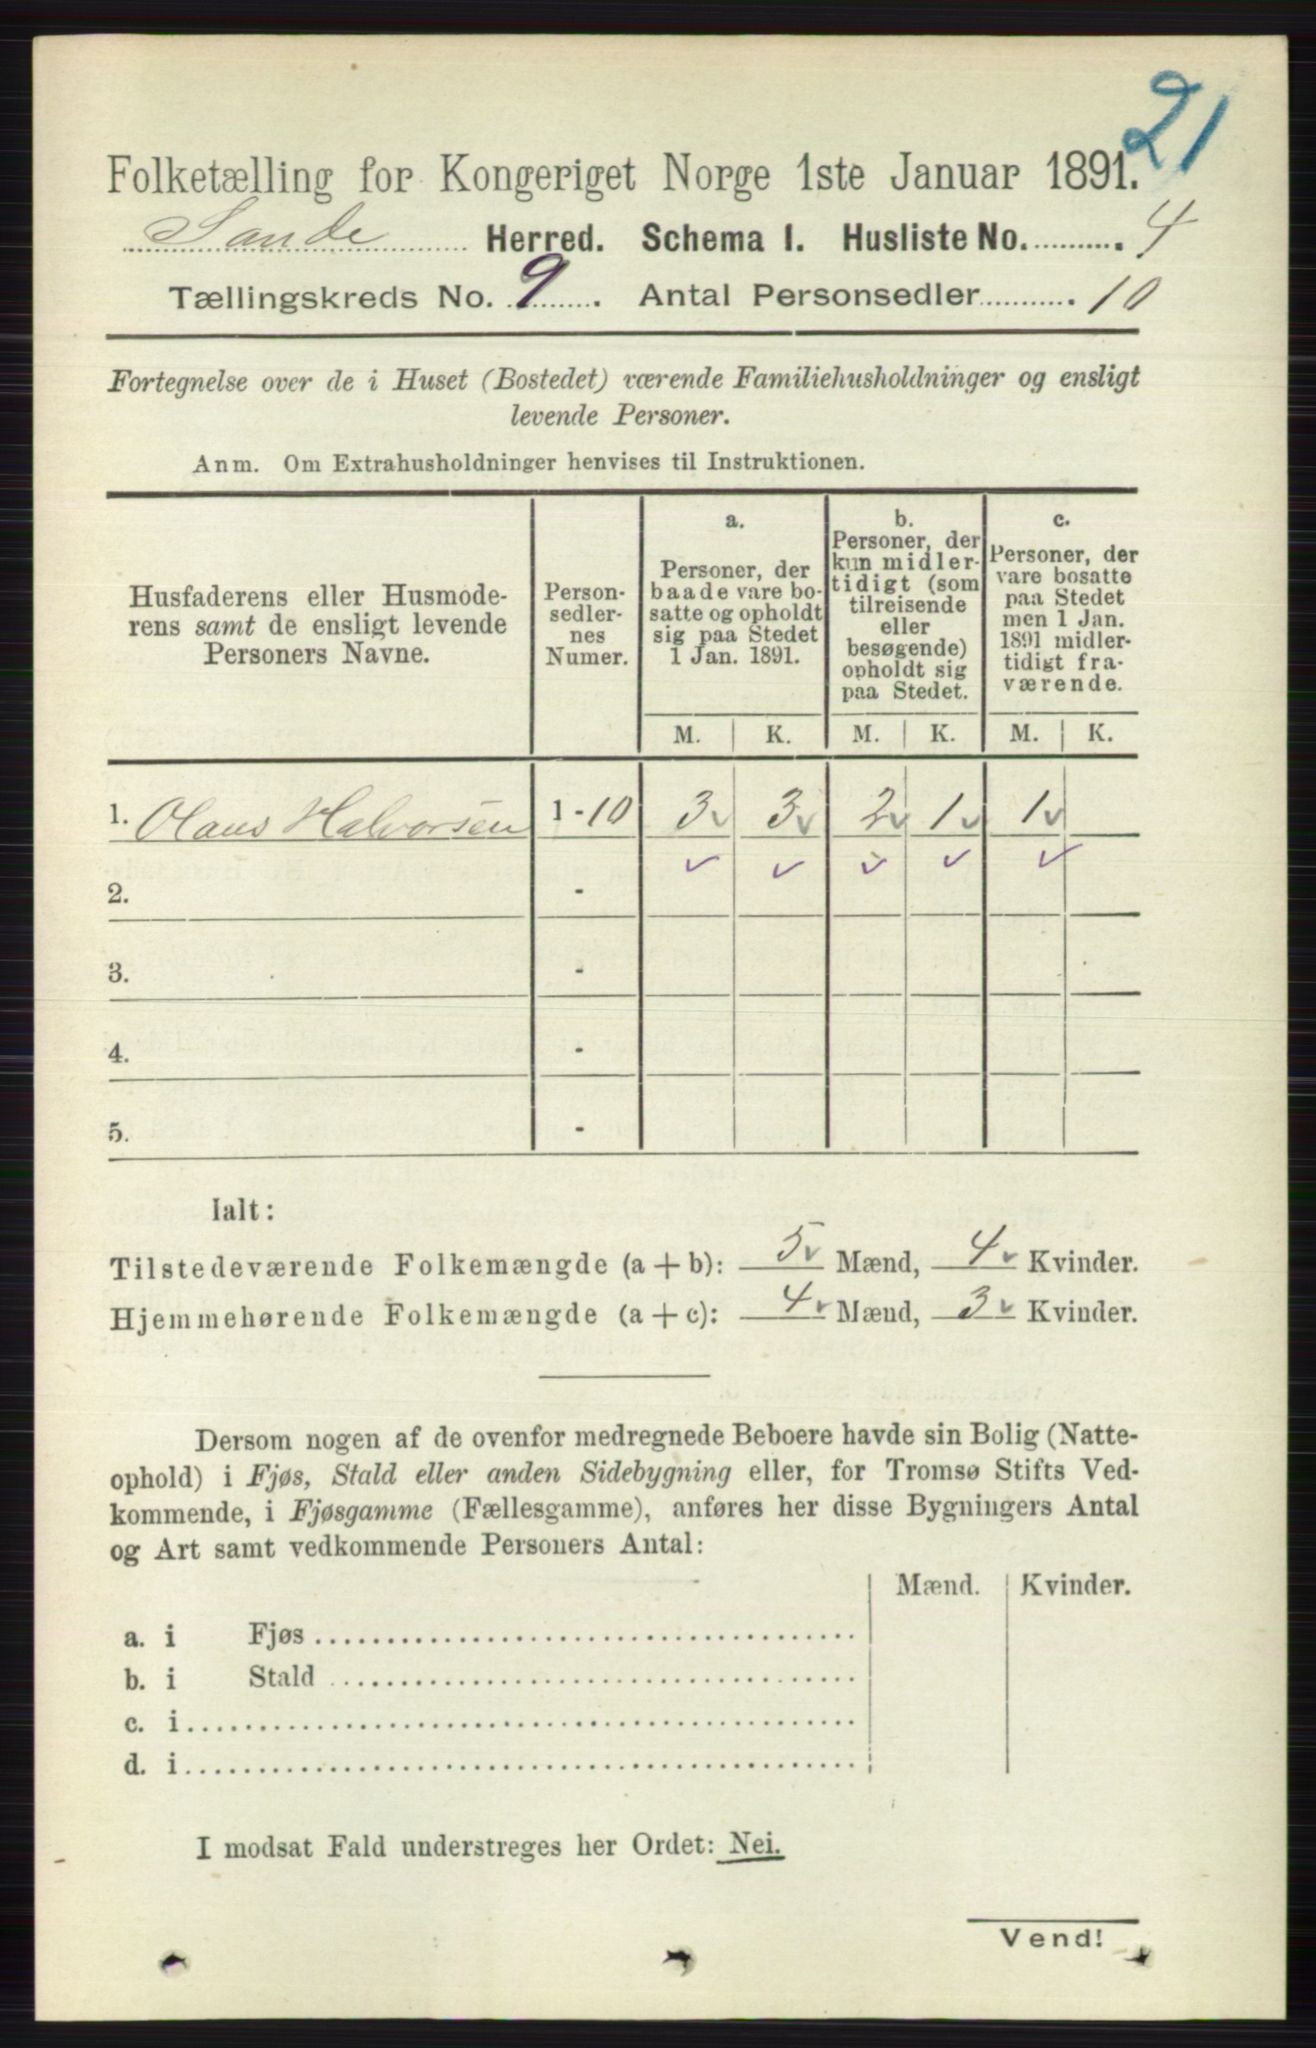 21
Folketælling for Kongeriget Norge 1ste Januar 1891.
Sande Herred. Schema I. Husliste No. 4
Tællingskreds No. 9. Antal Personsedler 10
Fortegnelse over de i Huset (Bostedet) værende Familiehusholdninger og ensligt
levende Personer.
Anm. Om Extrahusholdninger henvises til Instruktionen.
Husfaderens eller Husmode-
rens samt de ensligt levende
Personers Navne.
Person-
sedler-
nes
Numer.
a.
Personer, der
baade vare bo-
satte og opholdt
sig paa Stedet
1 Jan. 1891.
b.
Personer, der
kun midler-
tidigt (som
tilreisende
eller
besøgende)
opholdt sig
paa Stedet.
c.
Personer, der
vare bosatte
paa Stedet
men 1 Jan.
1891 midler-
tidigt fra-
værende.
M. K. M. K. M. K.
1. Olaus Halvorsen 1-10 3v 3v 2v 1v 1v
✓ ✓ ✓ ✓ ✓
2. -
3. -
4. -
5. -
Ialt:
Tilstedeværende Folkemængde (a + b): 5v Mænd, 4v Kvinder.
Hjemmehørende Folkemængde (a + c): 4v Mænd, 3v Kvinder.
Dersom nogen af de ovenfor medregnede Beboere havde sin Bolig (Natte-
ophold) i Fjøs, Stald eller anden Sidebygning eller, for Tromsø Stifts Ved-
kommende, i Fjøsgamme (Fællesgamme), anføres her disse Bygningers Antal
og Art samt vedkommende Personers Antal:
Mænd. Kvinder.
a. i Fjøs
b. i Stald
c. i
d. i
I modsat Fald understreges her Ordet: Nei.
Vend!